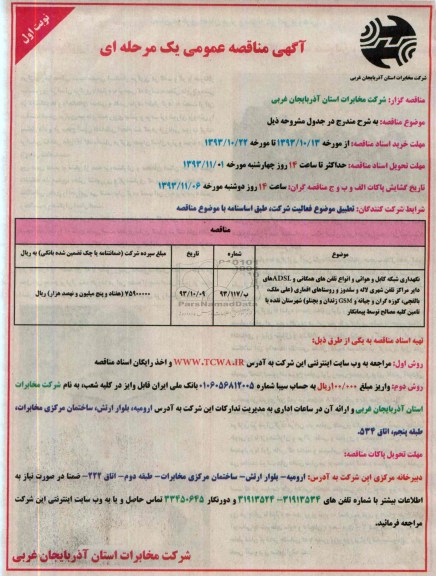 نوبت اول
آگهی مناقصه عمومی یک مرحله ای
شرکت مخابرات استان آذربایجان غربی
مناقصه گزار: شرکت مخابرات استان آذربایجان غربی
موضوع مناقصه: به شرح مندرج در جدول مشروحه ذیل
مهلت خرید اسناد مناقصه: از مورخه ۱۳۹۳/۱۰/۱۳ تا مورخه ۱۳۹۳/۱۰/۲۲
مهلت تحویل اسناد مناقصه: حداکثر تا ساعت ۱۴ روز چهارشنبه مورخه ۱۳۹۳/۱۱/۰۱
تاریخ گشایش پاکات الف و ب ج مناقصه گران: ساعت ۱۴ روز دوشنبه مورخه ۱۳۹۳/۱۱/۰۶
شرایط شرکت کنندگان: تطبیق موضوع فعالیت شرکت، طبق اساسنامه با موضوع مناقصه
مناقصه
موضوع شماره تاریخ مبلغ سپرده شرکت (ضمانتنامه یا چک تضمین شده بانکی) به ریال
نگهداری شبکه کابل و هوائی و انواع تلفن های همگانی و ADSLهای
دایر مراکز تلفن شهری لاله و سلدوز و روستاهای اقماری (علی ملک،
بالقچی، کوزه گران و چیانه و GSM زندان و بچنلو) شهرستان نقده با
تامین کلیه مصالح توسط پیمانکار
ب/۹۳/۱۱۷ ۹۳/۱۰/۰۹ ۷۵۹۰۰۰۰۰ (هفتاد و پنج میلیون و نهصد هزار) ریال
تهیه اسناد مناقصه به یکی از طرق ذیل:
روش اول: مراجعه به وب سایت اینترنتی این شرکت به آدرس WWW.TCWA.IR و اخذ رایگان اسناد مناقصه
روش دوم: واریز مبلغ ۱۰۰/۰۰۰ریال به حساب سیبا شماره ۰۱۰۶۰۵۶۸۱۲۰۰۵ بانک ملی ایران قابل واریز در کلیه شعب، به نام شرکت مخابرات
استان آذربایجان غربی و ارائه آن در ساعات اداری به مدیریت تدارکات این شرکت به آدرس ارومیه، بلوار ارتش، ساختمان مرکزی مخابرات،
طبقه پنجم، اتاق ۵۳۴.
مهلت تحویل پاکات مناقصه:
دبیرخانه مرکزی این شرکت به آدرس: ارومیه- بلوار ارتش- ساختمان مرکزی مخابرات- طبقه دوم- اتاق ۲۲۲- ضمنا در صورت نیاز به
اطلاعات بیشتر با شماره تلفن های ۳۱۹۱۳۵۳۴- ۳۱۹۱۳۵۲۴ و دورنگار ۳۳۴۵۰۶۴۵ تماس حاصل و یا به وب سایت اینترنتی این شرکت
مراجعه فرمائید.
شرکت مخابرات استان آذربایجان غربی